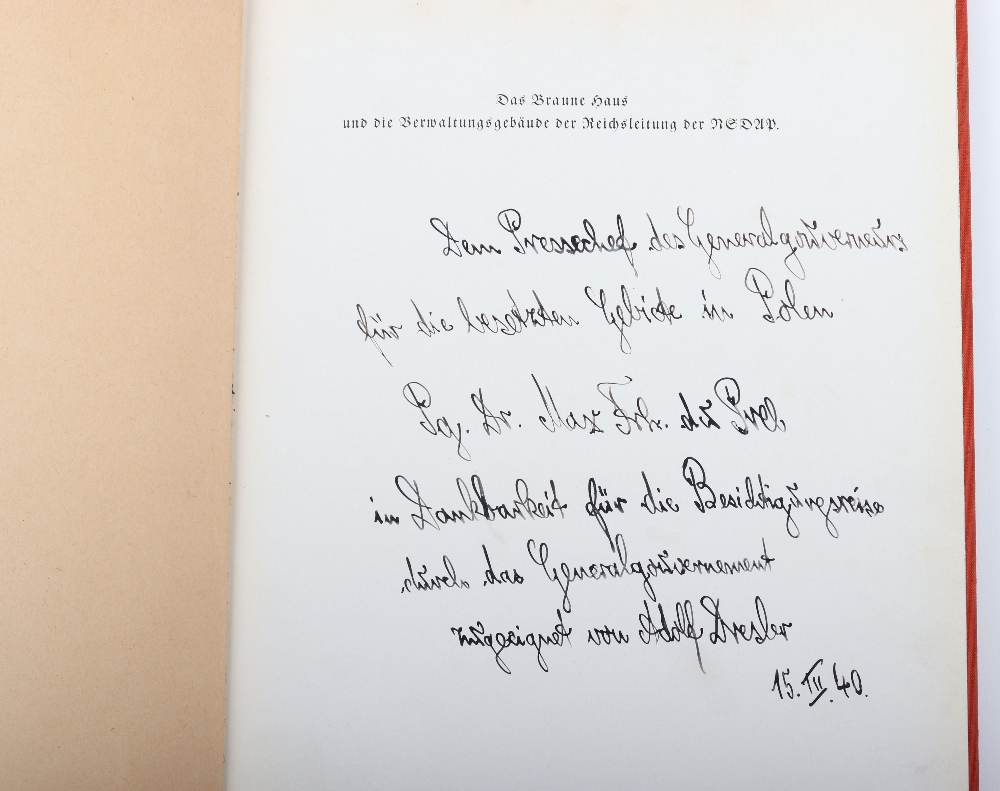 Das Braune Haus
und die Verwaltungsgebäude der Reichsleitung der NSDAP.
Dem Pressechef des Generalgouverneurs
für die besetzten Gebiete in Polen
Pg. Dr. Max Frh. du Prel
in Dankbarkeit für die Besichtigungsreise
durch das Generalgouvernement
zugeeignet von Adolf Dresler
15. III. 40.